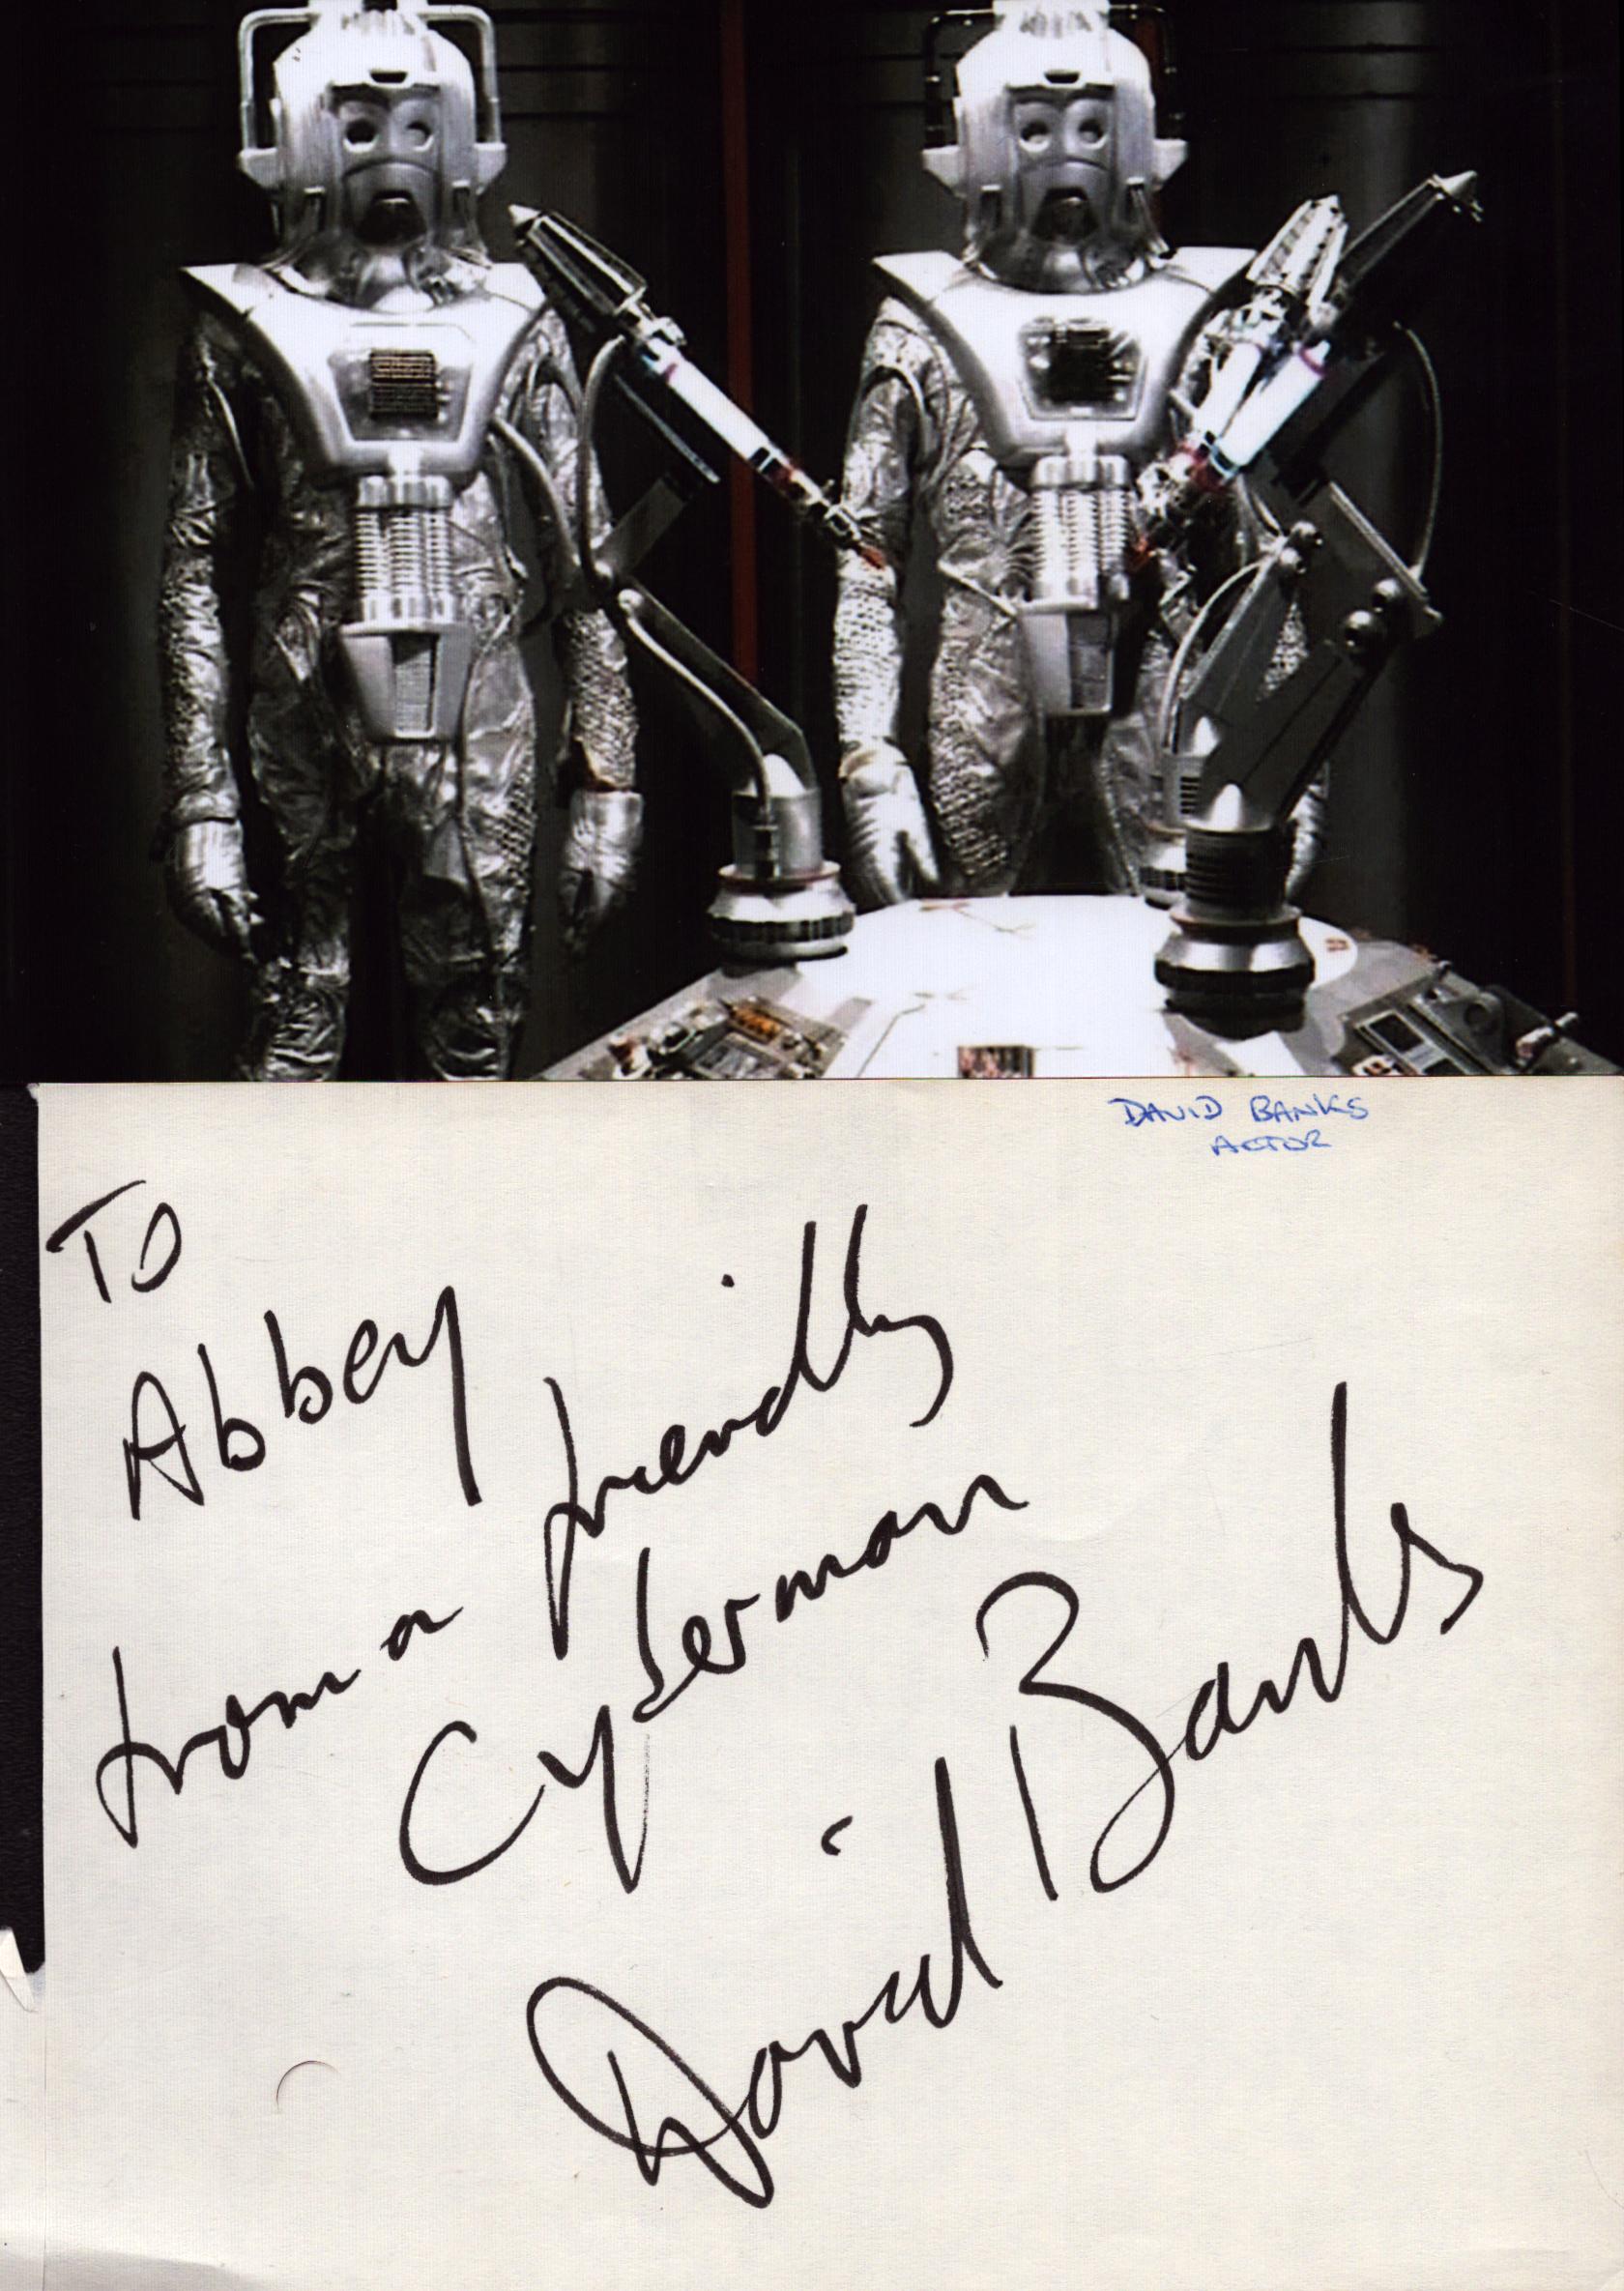 DAVID BANKS
ACTOR
To
Abbey
from a friendly
Cyberman
David Banks